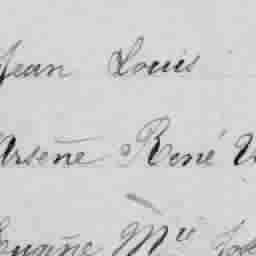 Jean Louis
Arsène René
Eugène Mie